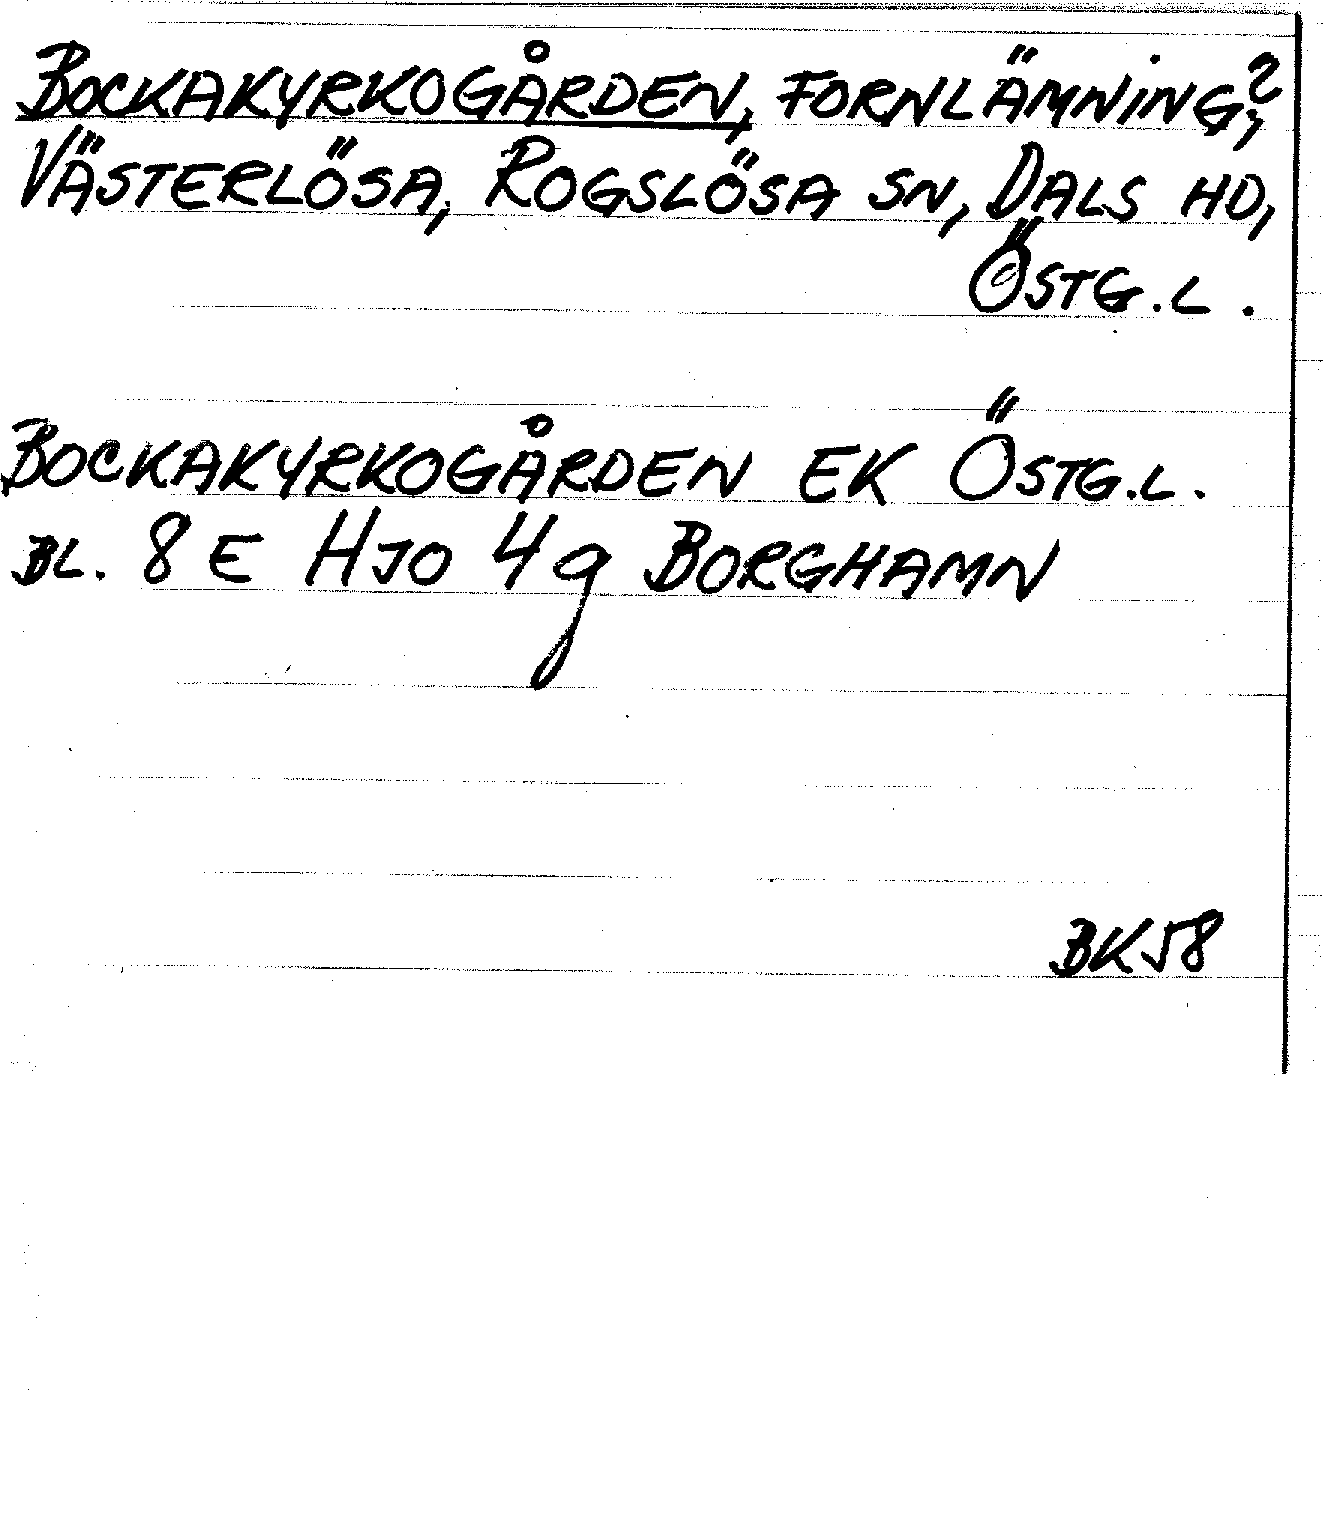 BOCKAKYRKOGÅRDEN, FORNLÄMNING?,
VÄSTERLÖSA, ROGSLÖSA SN, DALS HD,
ÖSTG.L.
BOCKAKYRKOGÅRDEN EK ÖSTG.L.
BL. 8 E HJO 4g BORGHAMN
BK58